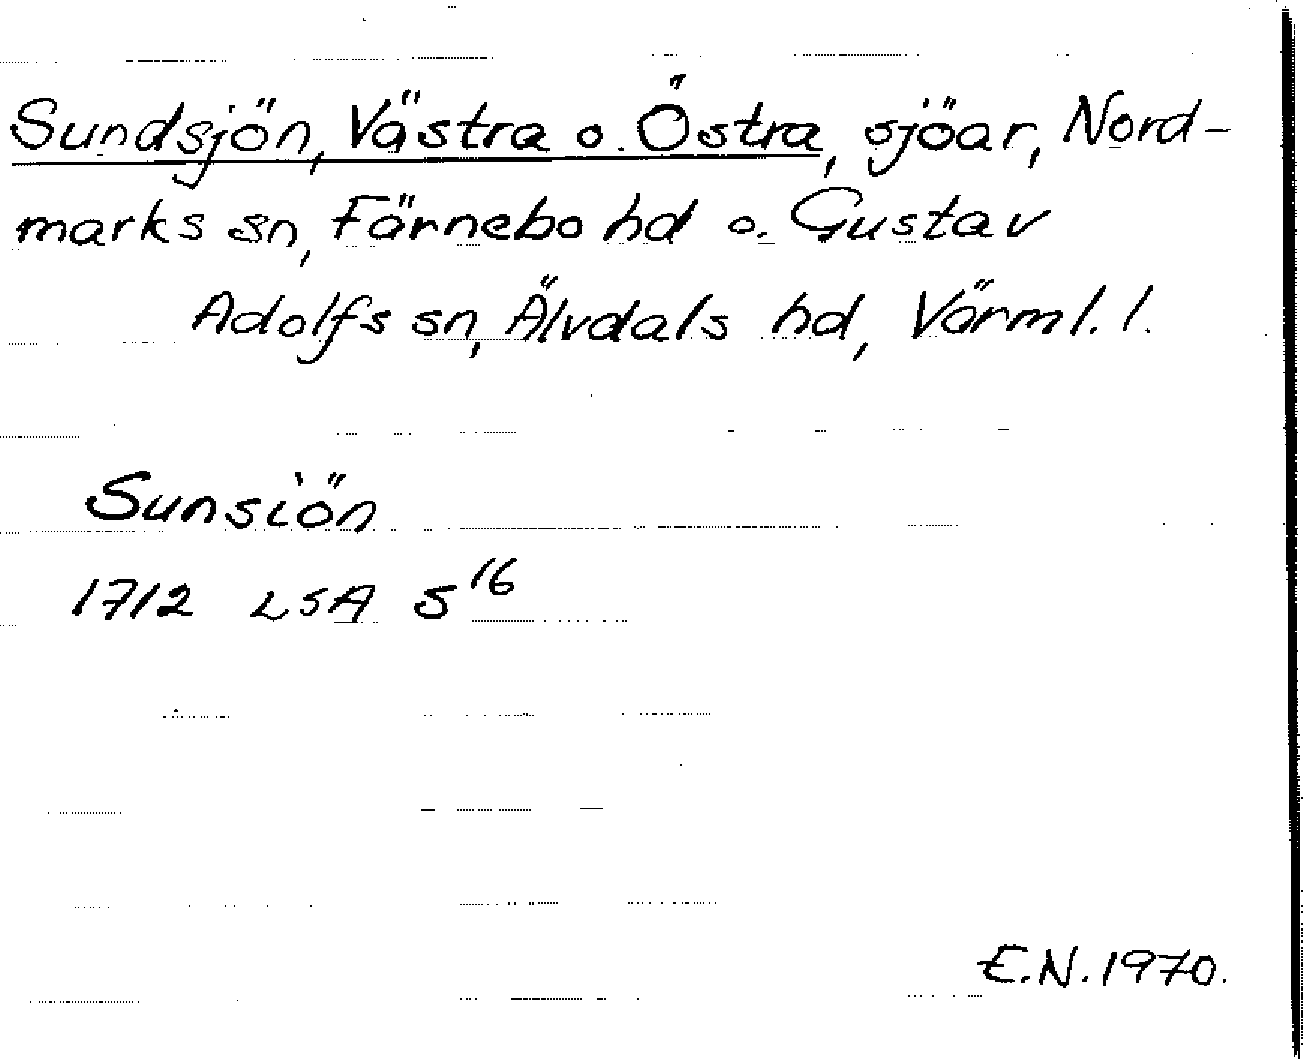 Sundsjön, Västra o. Östra, sjöar, Nord-
marks sn, Färnebo hd o. Gustav
Adolfs sn, Älvdals hd, Värml. l.
Sunsiön
1712 LSA S¹⁶
E.N. 1970.